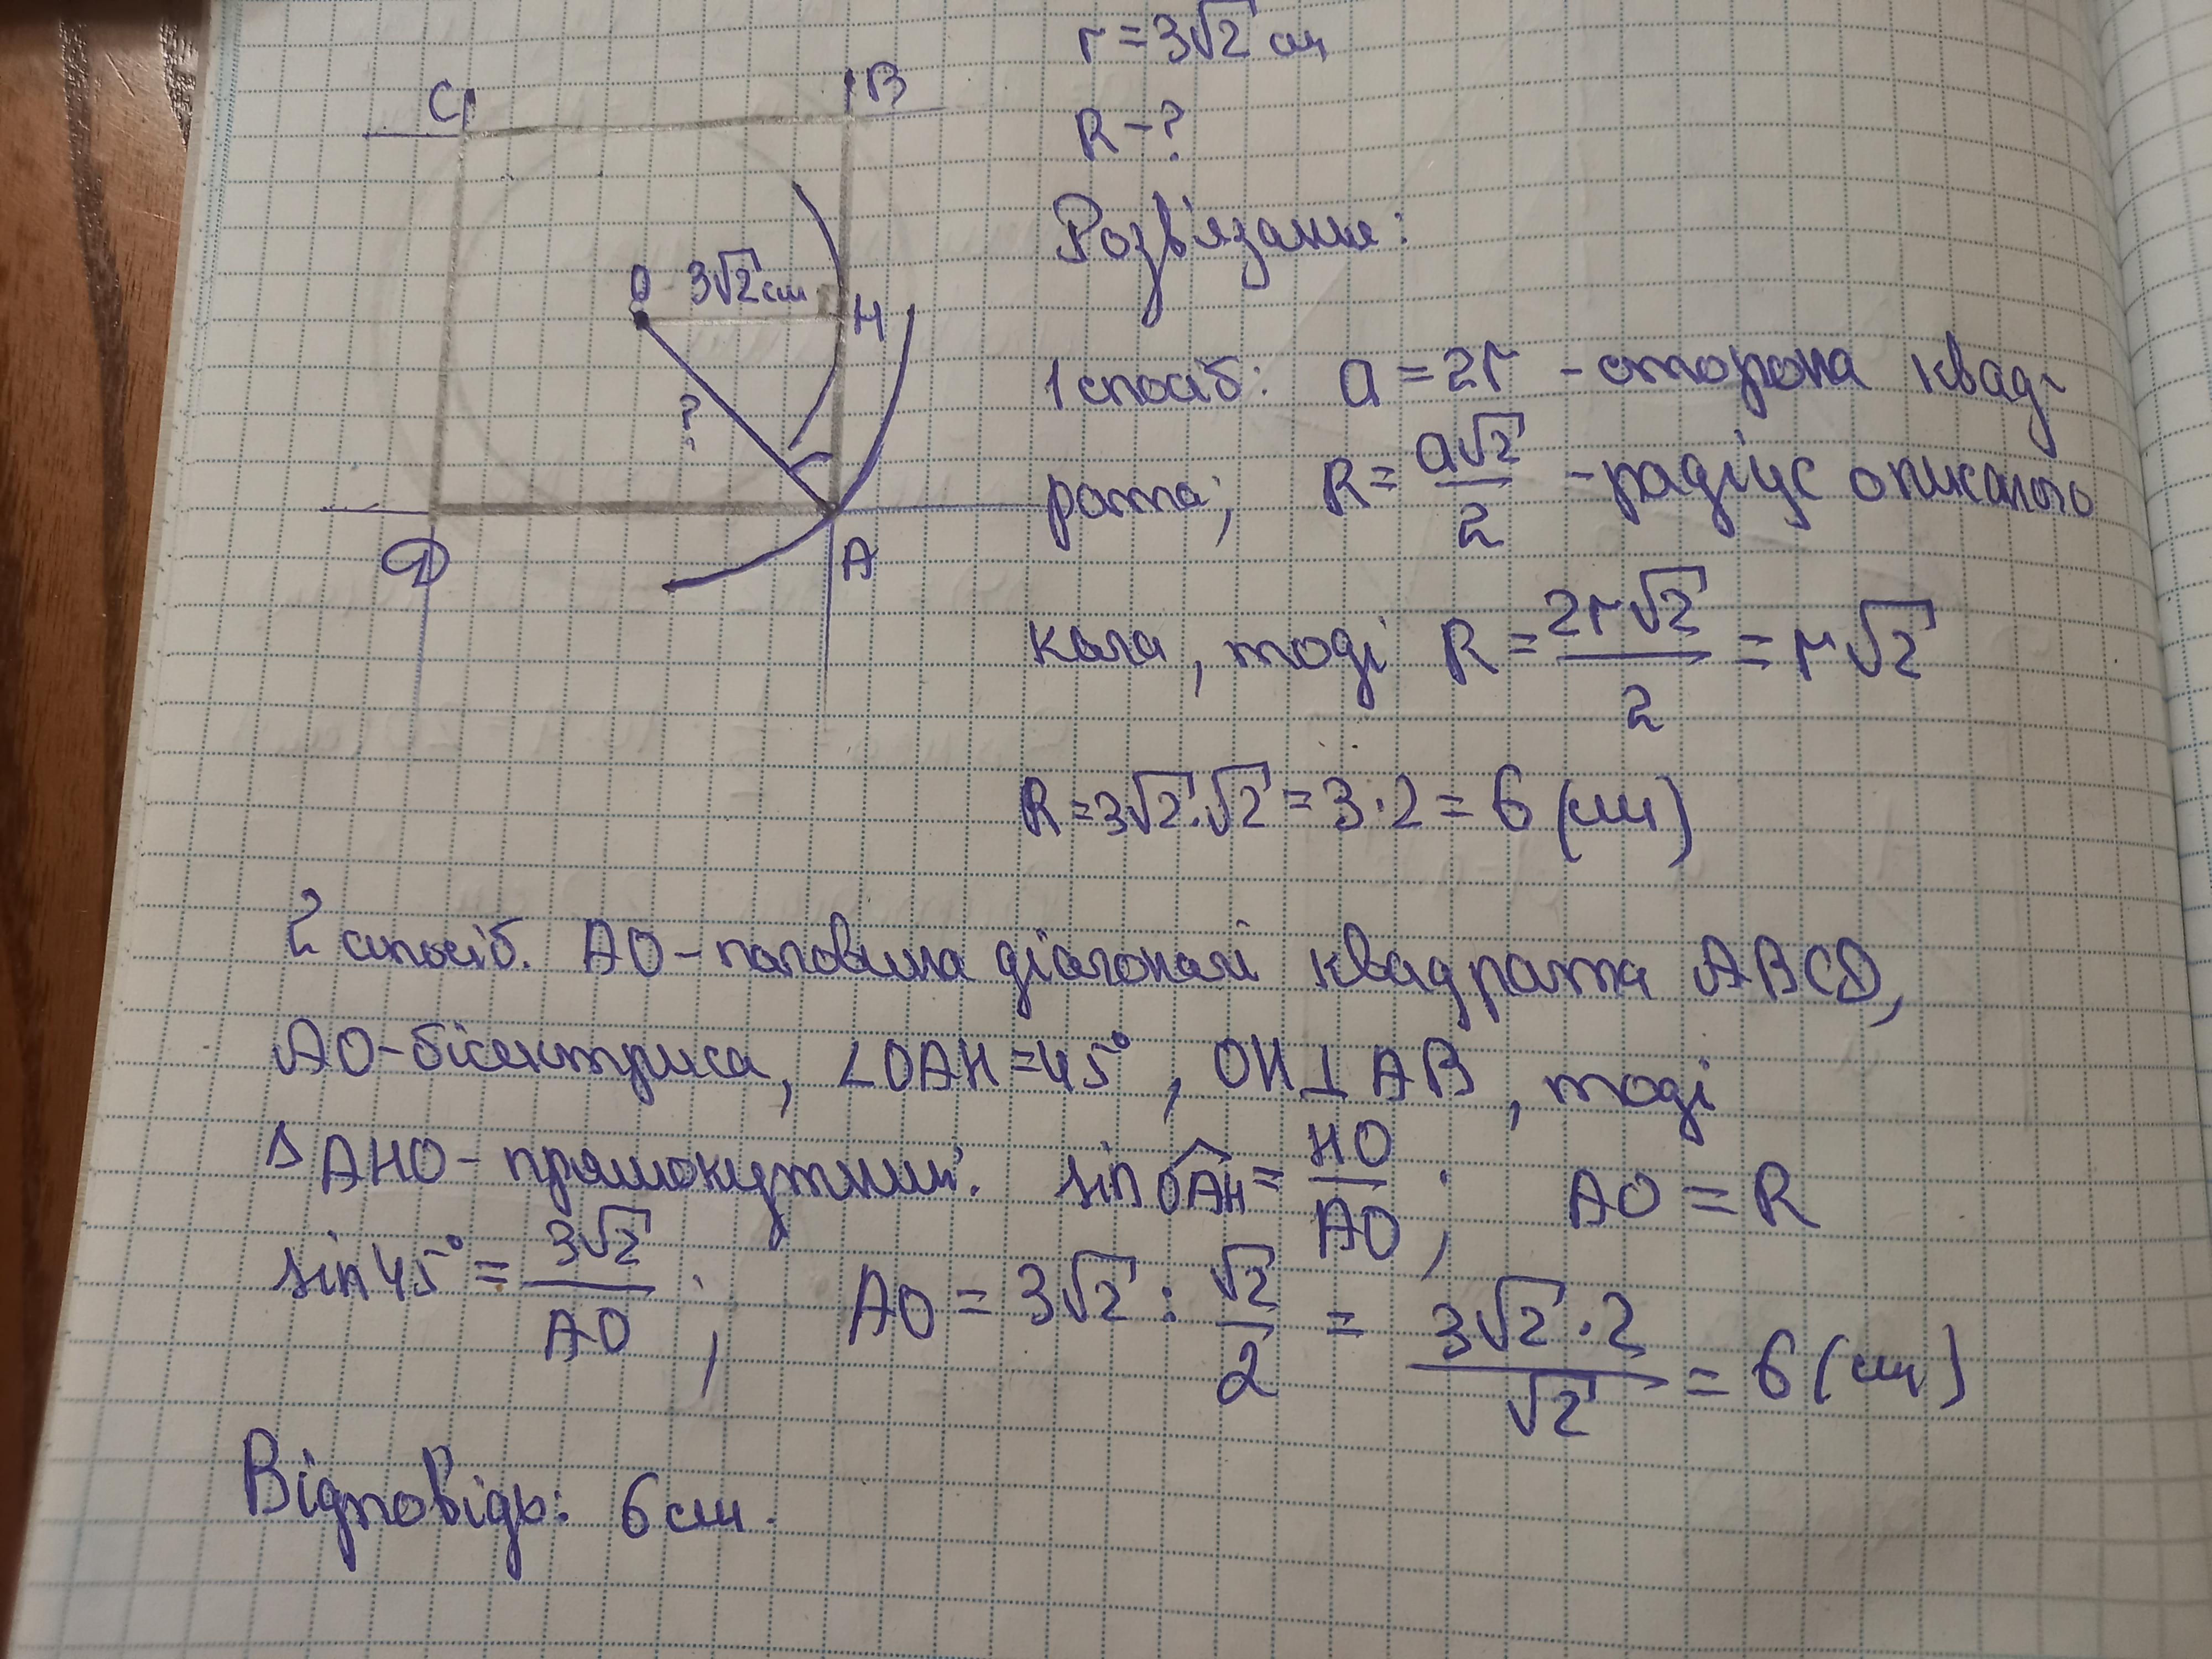 r = 3√2 см
R - ?
C
B
Розв'язання:
O
3√2 см
H
?
D
A
1 спосіб: a = 2r - сторона квад-
рата; R = a√2/2 - радіус описаного
кола, тоді R = 2r√2/2 = r√2
R = 3√2·√2 = 3·2 = 6 (см)
2 спосіб. AO - половина діагоналі квадрата ABCD,
AO - бісектриса, ∠OAH = 45°, OH ⊥ AB, тоді
Δ AHO - прямокутний. sin OAH = HO/AO; AO = R
sin 45° = 3√2/AO; AO = 3√2 : √2/2 = 3√2·2/√2 = 6 (см)
Відповідь: 6 см.